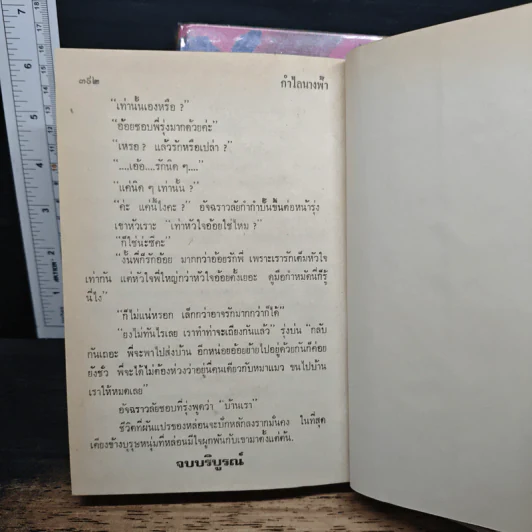 ๓๙๒ กำไลนางฟ้า
"เท่านั้นเองหรือ ?"
"อ้อยชอบพี่รุ่งมากด้วยค่ะ"
"เหรอ ? แล้วรักหรือเปล่า ?"
"....เอ้อ....รักนิด ๆ...."
"แค่นิด ๆ เท่านั้น ?"
"ค่ะ แค่นี้ไงคะ ?" อัจฉราวลัยกำกำปั้นยื่นต่อหน้ารุ่ง
เขาหัวเราะ "เท่าหัวใจอ้อยใช่ไหม ?"
"ก็ใช่น่ะซีคะ"
"งั้นพี่ก็รักอ้อย มากกว่าอ้อยรักพี่ เพราะเรารักเต็มหัวใจ
เท่ากัน แต่หัวใจพี่ใหญ่กว่าหัวใจอ้อยตั้งเยอะ ดูมือกำหมัดนี่ก็รู้
นี่ไง"
"ก็ไม่แน่หรอก เล็กกว่าอาจรักมากกว่าก็ได้"
"ยังไม่ทันไรเลย เราทำท่าจะเถียงกันแล้ว" รุ่งบ่น "กลับ
กันเถอะ พี่จะพาไปส่งบ้าน อีกหน่อยอ้อยย้ายไปอยู่ด้วยกันก็ค่อย
ยังชั่ว พี่จะได้ไม่ต้องห่วงว่าอยู่นี่คนเดียวกับหมาแมว ขนไปบ้าน
เราให้หมดเลย"
อัจฉราวลัยชอบที่รุ่งพูดว่า 'บ้านเรา'
ชีวิตที่ผันแปรของหล่อนจะปักหลักลงรากมั่นคง ในที่สุด
เคียงข้างบุรุษหนุ่มที่หล่อนมีใจผูกพันกับเขามาตั้งแต่ต้น.
จบบริบูรณ์
1
2
3
4
5
6
7